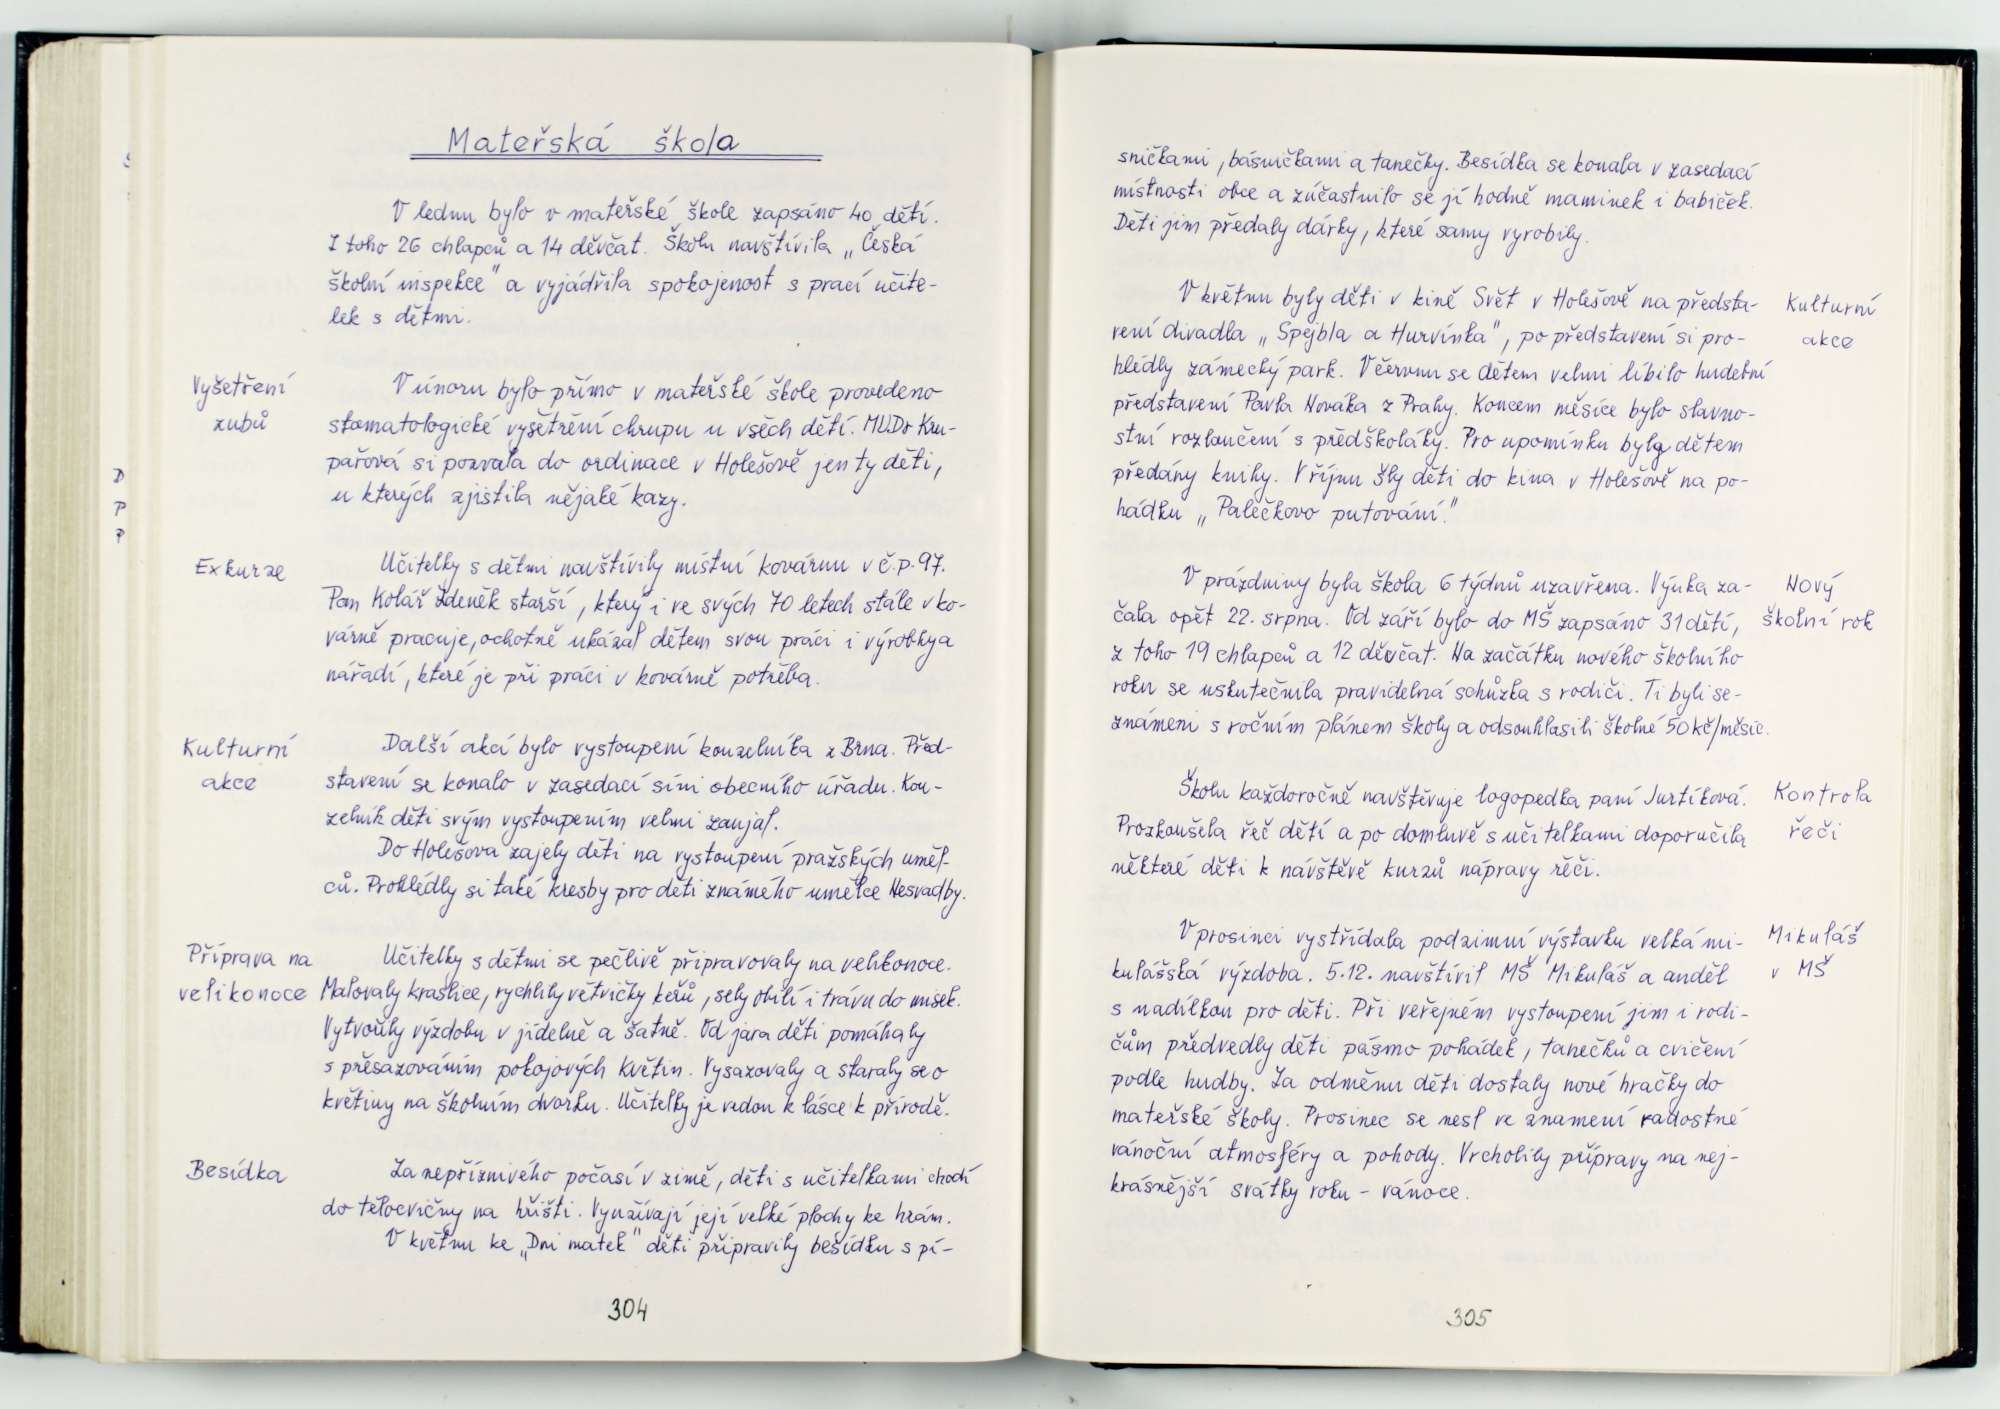 Mateřská škola
V lednu bylo v mateřské škole zapsáno 40 dětí.
Z toho 26 chlapců a 14 děvčat. Školu navštívila „Česká
školní inspekce" a vyjádřila spokojenost s prací učite-
lek s dětmi.
Vyšetření
zubů
V únoru bylo přímo v mateřské škole provedeno
stomatologické vyšetření chrupu u všech dětí. MUDr Kru-
pařová si pozvala do ordinace v Holešově jen ty děti,
u kterých zjistila nějaké kazy.
Exkurze
Učitelky s dětmi navštívily místní kovárnu v č.p. 97.
Pan Kolář Zdeněk starší, který i ve svých 70 letech stále v ko-
várně pracuje, ochotně ukázal dětem svou práci i výrobky a
nářadí, které je při práci v kovárně potřeba.
Kulturní
akce
Další akcí bylo vystoupení kouzelníka z Brna. Před-
stavení se konalo v zasedací síni obecního úřadu. Kou-
zelník děti svým vystoupením velmi zaujal.
Do Holešova zajely děti na vystoupení pražských uměl-
ců. Prohlédly si také kresby pro děti známého umělce Nesvadby.
Příprava na
velikonoce
Učitelky s dětmi se pečlivě připravovaly na velikonoce.
Malovaly kraslice, rychlily větvičky keřů, sely obilí i trávu do misek.
Vytvořily výzdobu v jídelně a šatně. Od jara děti pomáhaly
s přesazováním pokojových květin. Vysazovaly a staraly se o
květiny na školním dvorku. Učitelky je vedou k lásce k přírodě.
Besídka
Za nepříznivého počasí v zimě, děti s učitelkami chodí
do tělocvičny na hřišti. Využívají její velké plochy ke hrám.
V květnu ke „Dni matek" děti připravily besídku s pí-
304
sničkami, básničkami a tanečky. Besídka se konala v zasedací
místnosti obce a zúčastnilo se jí hodně maminek i babiček.
Děti jim předaly dárky, které samy vyrobily.
Kulturní
akce
V květnu byly děti v kině Svět v Holešově na předsta-
vení divadla „Spejbla a Hurvínka", po představení si pro-
hlédly zámecký park. V červnu se dětem velmi líbilo hudební
představení Pavla Nováka z Prahy. Koncem měsíce bylo slavno-
stní rozloučení s předškoláky. Pro upomínku byly dětem
předány knihy. V říjnu šly děti do kina v Holešově na po-
hádku „Palečkovo putování."
Nový
školní rok
V prázdniny byla škola 6 týdnů uzavřena. Výuka za-
čala opět 22. srpna. Od září bylo do MŠ zapsáno 31 dětí,
z toho 19 chlapců a 12 děvčat. Na začátku nového školního
roku se uskutečnila pravidelná schůzka s rodiči. Ti byli se-
známeni s ročním plánem školy a odsouhlasili školné 50 kč/měsíc.
Kontrola
řeči
Školu každoročně navštěvuje logopedka paní Jurtíková.
Prozkoušela řeč dětí a po domluvě s učitelkami doporučila
některé děti k návštěvě kurzů nápravy řeči.
Mikuláš
v MŠ
V prosinci vystřídala podzimní výstavku velká mi-
kulášská výzdoba. 5.12. navštívil MŠ Mikuláš a anděl
s nadílkou pro děti. Při veřejném vystoupení jim i rodi-
čům předvedly děti pásmo pohádek, tanečků a cvičení
podle hudby. Za odměnu děti dostaly nové hračky do
mateřské školy. Prosinec se nesl ve znamení radostné
vánoční atmosféry a pohody. Vrcholily přípravy na nej-
krásnější svátky roku - vánoce.
305